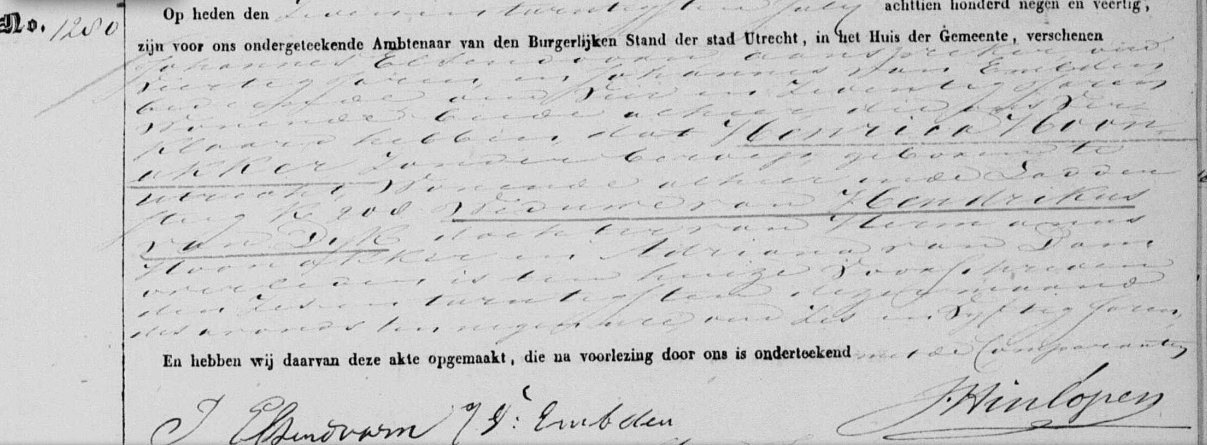 No. 1280
Op heden den zevenentwintigsten July achttien honderd negen en veertig,
zijn voor ons ondergeteekende Ambtenaar van den Burgerlijken Stand der stad Utrecht, in het Huis der Gemeente, verschenen
Johannes Elsendoorn aanspreker oud
veertig Jaren en Johannes van Embden
bediende oud vier en zeventig Jaren
wonende beide alhier, die ons ver-
klaard hebben, dat Henrica Hoon-
akker zonder beroep geboren te
Utrecht, wonende alhier inde
steeg K 902 Weduwe van Hendrikus
van Dijk dochter van Hermanus
Hoonakker en Adriana van Dam,
overleden is ten huize voorschreven
den zes en twintigsten dezer maand
des avonds ten negen ure oud zes en vijftig Jaren,
En hebben wij daarvan deze akte opgemaakt, die na voorlezing door ons is onderteekend met de Comparanten
J Elsendoorn J V. Embden J. Hinlopen